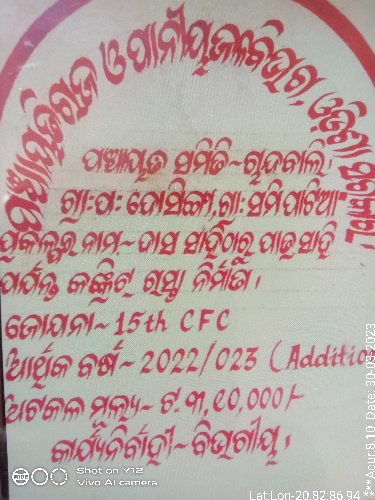 ପଞ୍ଚାୟତିରାଜ ଓ ପାନୀୟଜଳ ବିଭାଗ, ଓଡ଼ିଶା ସରକାର
ପଞ୍ଚାୟତ ସମିତି~ଚାନ୍ଦବାଲି
ଗ୍ରା:ପ: ଘୋସିଙ୍ଗା, ଗ୍ରା: ସମିପାଟିଆ
ପ୍ରକଳ୍ପର ନାମ~ ଦାସ ସାହିଠାରୁ ପାତ୍ର ସାହି
ପର୍ଯ୍ୟନ୍ତ କଙ୍କ୍ରିଟ୍ ରାସ୍ତା ନିର୍ମାଣ।
ଯୋଜନା~ 15th CFC
ଆର୍ଥିକ ବର୍ଷ~ 2022/023 (Additio
ଅଟକଳ ମୂଲ୍ୟ~ ଟ.୩,୧୦,000/-
କାର୍ଯ୍ୟନିର୍ବାହୀ~ ବିଭାଗୀୟ।
Shot on Y12
Vivo AI camera
Lat:Lon-20.82:86.94
***Acur:8.10, Date: 30-03-2023